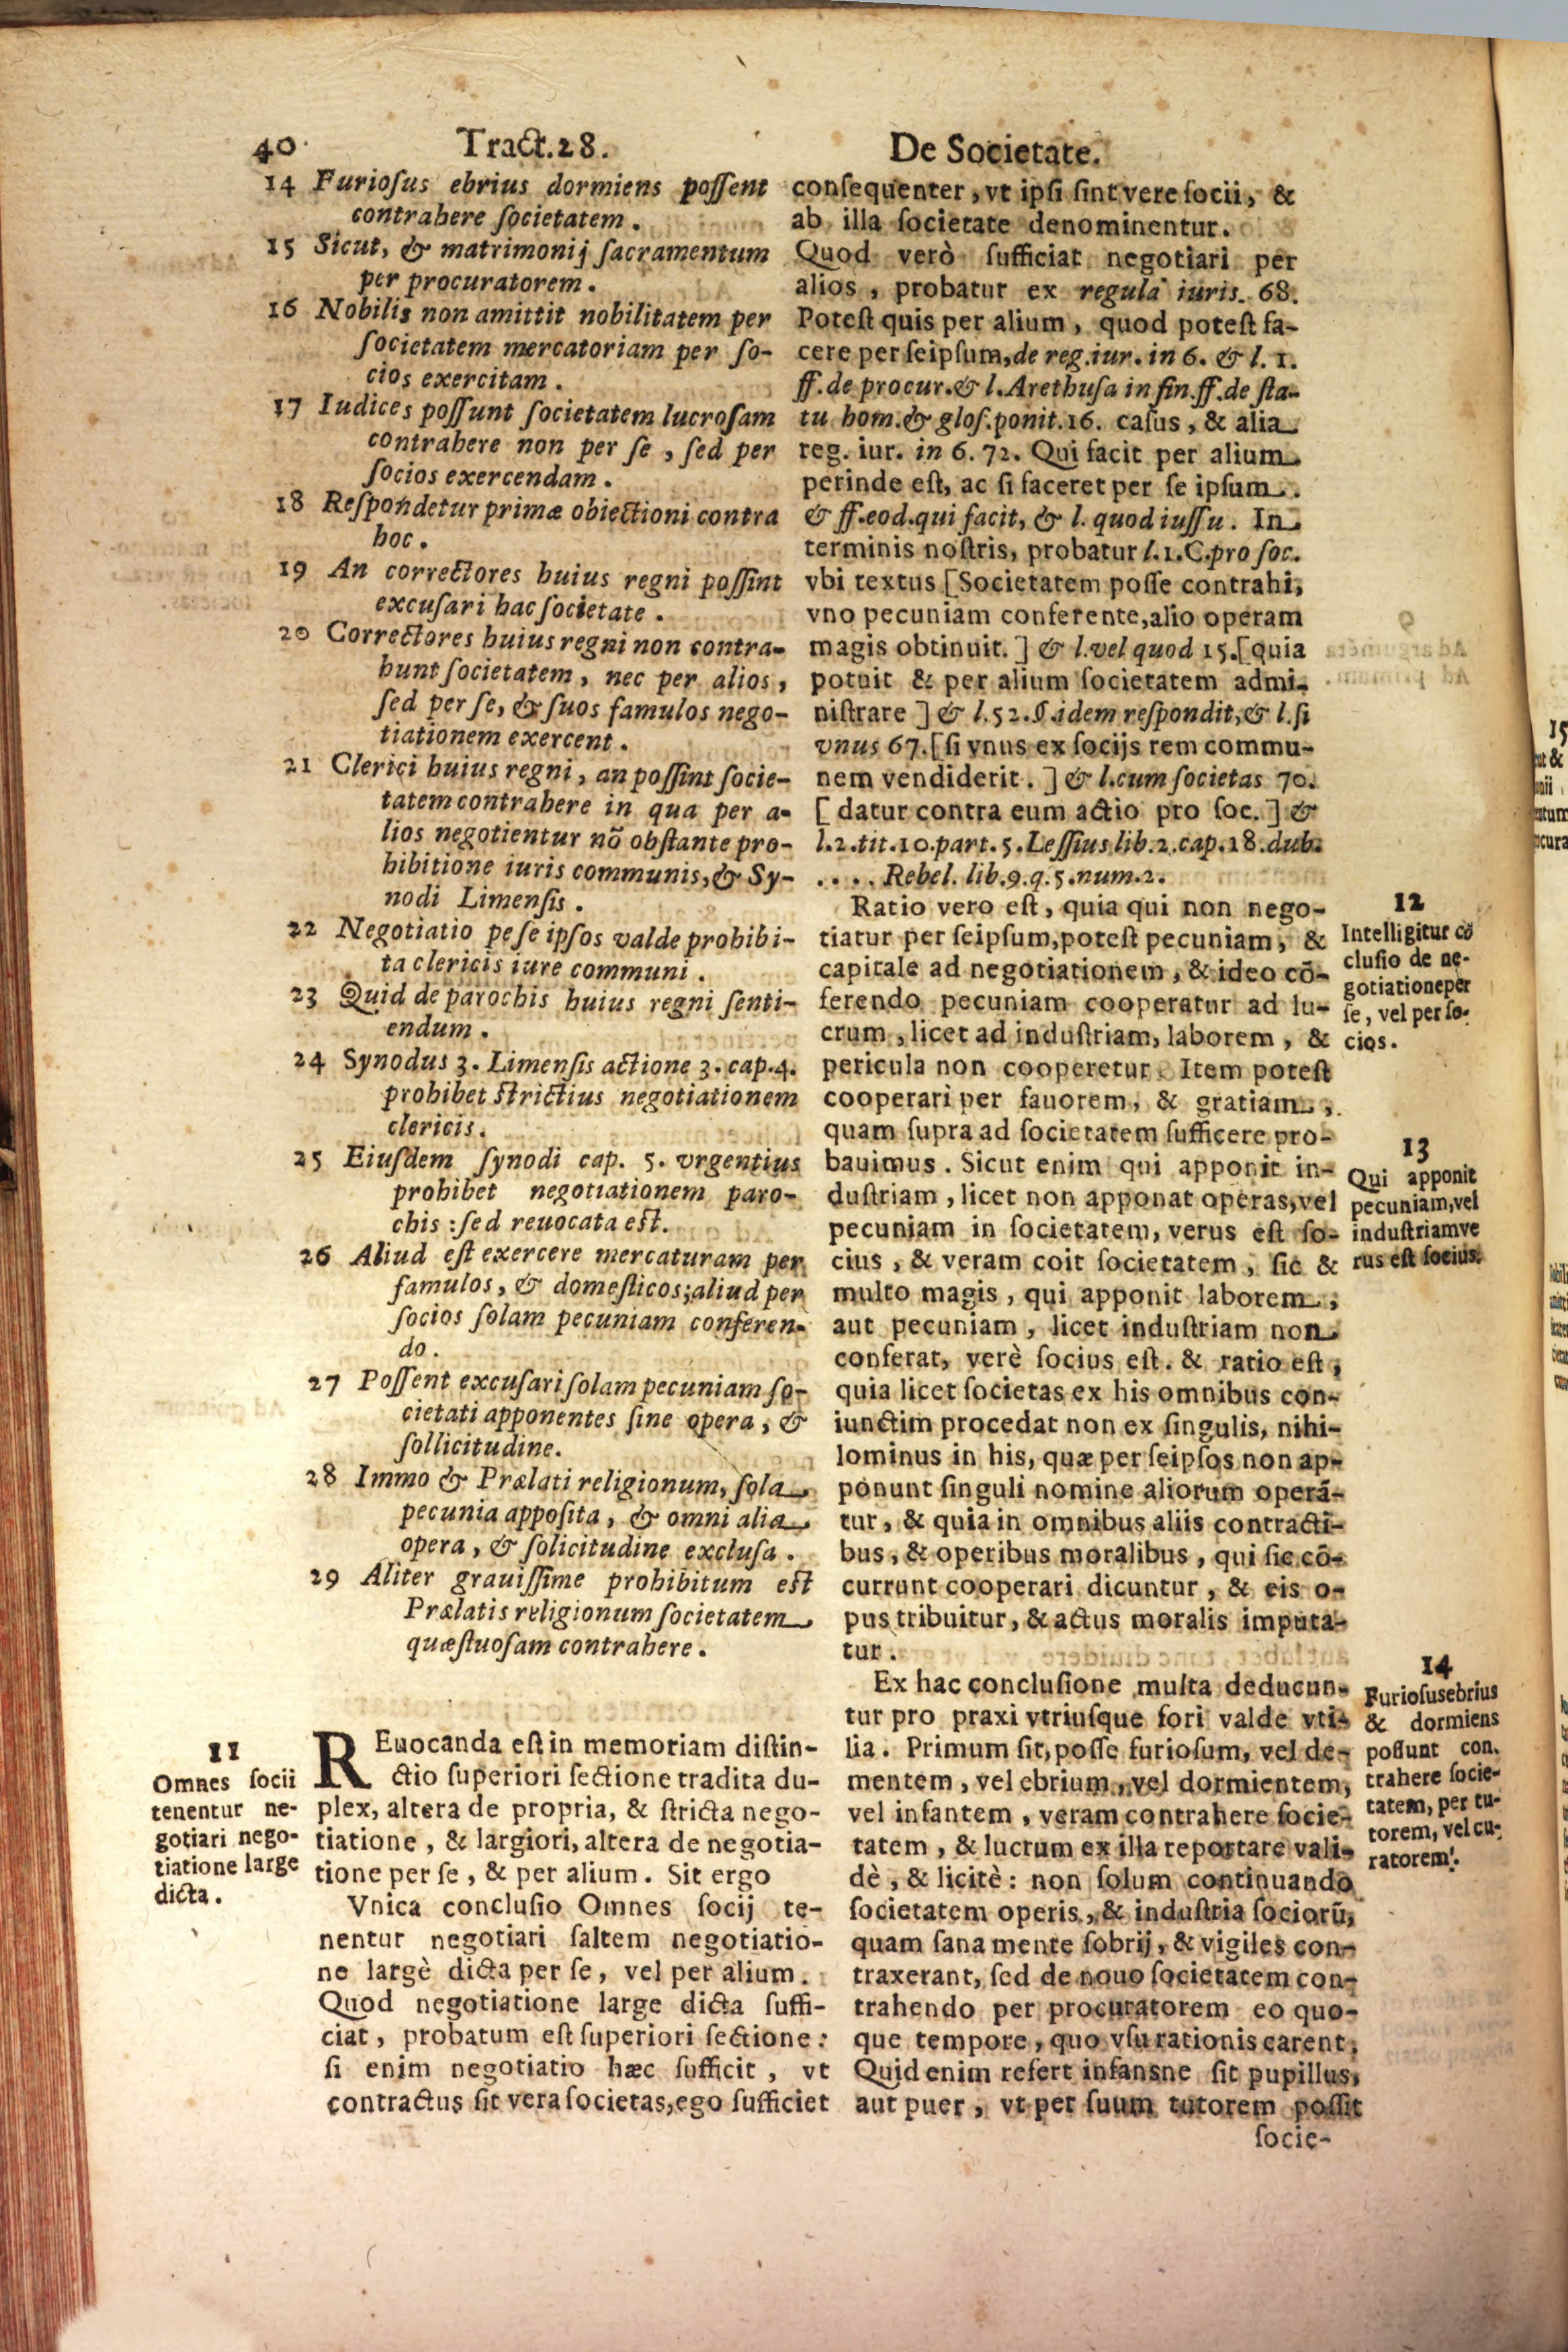 40 Tract.28. De Societate.
14 Furioſus ebrius dormiens poſſent
contrahere ſocietatem .
15 Sicut, & matrimonij ſacramentum
per procuratorem .
16 Nobilis non amittit nobilitatem per
ſocietatem mercatoriam per ſo-
cios exercitam .
17 Iudices poſſunt ſocietatem lucroſam
contrahere non per ſe , ſed per
ſocios exercendam .
18 Reſpondetur primæ obiectioni contra
hoc .
19 An correctores huius regni poſſint
excuſari hac ſocietate .
20 Correctores huius regni non contra-
hunt ſocietatem , nec per alios ,
ſed per ſe, & ſuos famulos nego-
tiationem exercent .
21 Clerici huius regni , an poſſint ſocie-
tatem contrahere in qua per a-
lios negotientur nõ obſtante pro-
hibitione iuris communis,& Sy-
nodi Limenſis .
22 Negotiatio pe ſe ipſos valde prohibi-
ta clericis iure communi .
23 Quid de parochis huius regni ſenti-
endum .
24 Synodus 3. Limenſis actione 3. cap.4.
prohibet ſtrictius negotiationem
clericis.
25 Eiuſdem ſynodi cap. 5. vrgentius
prohibet negotiationem paro-
chis : ſed reuocata eſt.
26 Aliud eſt exercere mercaturam per
famulos, & domeſticos;aliud per
ſocios ſolam pecuniam conferen-
do .
27 Poſſent excuſari ſolam pecuniam ſo-
cietati apponentes ſine opera , &
ſollicitudine.
28 Immo & Prælati religionum, ſola
pecunia appoſita , & omni alia
opera , & ſolicitudine excluſa .
29 Aliter grauiſſime prohibitum eſt
Prælatis religionum ſocietatem
quæſtuoſam contrahere .
11
Omnes ſocii
tenentur ne-
gotiari nego-
tiatione large
dicta .
REuocanda eſt in memoriam diſtin-
ctio ſuperiori ſectione tradita du-
plex, altera de propria, & ſtricta nego-
tiatione , & largiori, altera de negotia-
tione per ſe , & per alium . Sit ergo
Vnica concluſio Omnes ſocij te-
nentur negotiari ſaltem negotiatio-
ne largè dicta per ſe, vel per alium .
Quod negotiatione large dicta ſuffi-
ciat , probatum eſt ſuperiori ſectione :
ſi enim negotiatio hæc ſufficit , vt
contractus ſit vera ſocietas,ego ſufficiet
conſequenter , vt ipſi ſint vere ſocii, &
ab illa ſocietate denominentur .
Quod verò ſufficiat negotiari per
alios , probatur ex regula iuris. 68.
Poteſt quis per alium , quod poteſt fa-
cere per ſeipſum,de reg.iur. in 6. & l. 1.
ff.de procur.& l.Arethuſa in fin.ff.de ſta-
tu hom.& gloſ.ponit.16. caſus , & alia
reg. iur. in 6. 72. Qui facit per alium
perinde eſt, ac ſi faceret per ſe ipſum .
& ff.eod.qui facit, & l. quod iuſſu . In
terminis noſtris, probatur l.1.C.pro ſoc.
vbi textus [Societatem poſſe contrahi,
vno pecuniam conferente,alio operam
magis obtinuit. ] & l.vel quod 15.[quia
potuit & per alium ſocietatem admi-
niſtrare ] & l.52.§.idem reſpondit,& l.ſi
vnus 67.[ſi vnus ex ſocijs rem commu-
nem vendiderit . ] & l.cum ſocietas 70.
[ datur contra eum actio pro ſoc. ] &
l.2.tit.10.part.5.Leſſius lib.2.cap.18.dub.
. . . . Rebel. lib.9.q.5.num.2.
Ratio vero eſt , quia qui non nego-
tiatur per ſeipſum,poteſt pecuniam, &
capitale ad negotiationem , & ideo cõ-
ferendo pecuniam cooperatur ad lu-
crum , licet ad induſtriam, laborem , &
pericula non cooperetur . Item poteſt
cooperari per fauorem, & gratiam ,
quam ſupra ad ſocietatem ſufficere pro-
bauimus . Sicut enim qui apponit in-
duſtriam , licet non apponat operas,vel
pecuniam in ſocietatem, verus eſt ſo-
cius , & veram coit ſocietatem , ſic &
multo magis , qui apponit laborem ,
aut pecuniam , licet induſtriam non
conferat, verè ſocius eſt . & ratio eſt ,
quia licet ſocietas ex his omnibus con-
iunctim procedat non ex ſingulis, nihi-
lominus in his, quæ per ſeipſos non ap-
ponunt ſinguli nomine aliorum operã-
tur , & quia in omnibus aliis contracti-
bus , & operibus moralibus , qui ſic cõ-
currunt cooperari dicuntur , & eis o-
pus tribuitur, & actus moralis imputa-
tur .
Ex hac concluſione multa deducun-
tur pro praxi vtriuſque fori valde vti-
lia . Primum ſit,poſſe furioſum, vel de-
mentem , vel ebrium , vel dormientem,
vel infantem , veram contrahere ſocie-
tatem , & lucrum ex illa reportare vali-
dè , & licitè : non ſolum continuando
ſocietatem operis , & induſtria ſociorũ,
quam ſana mente ſobrij, & vigiles con-
traxerant, ſed de nouo ſocietatem con-
trahendo per procuratorem eo quo-
que tempore , quo vſu rationis carent.
Quid enim refert infansne ſit pupillus,
aut puer , vt per ſuum tutorem poſſit
ſocie-
12
Intelligitur cõ
cluſio de ne-
gotiationeper
ſe , vel per ſo-
cios .
13
Qui apponit
pecuniam,vel
induſtriamve
rus eſt ſocius.
14
Furioſusebrius
& dormiens
poſſunt con-
trahere ſocie-
tatem, per tu-
torem, vel cu-
ratorem .